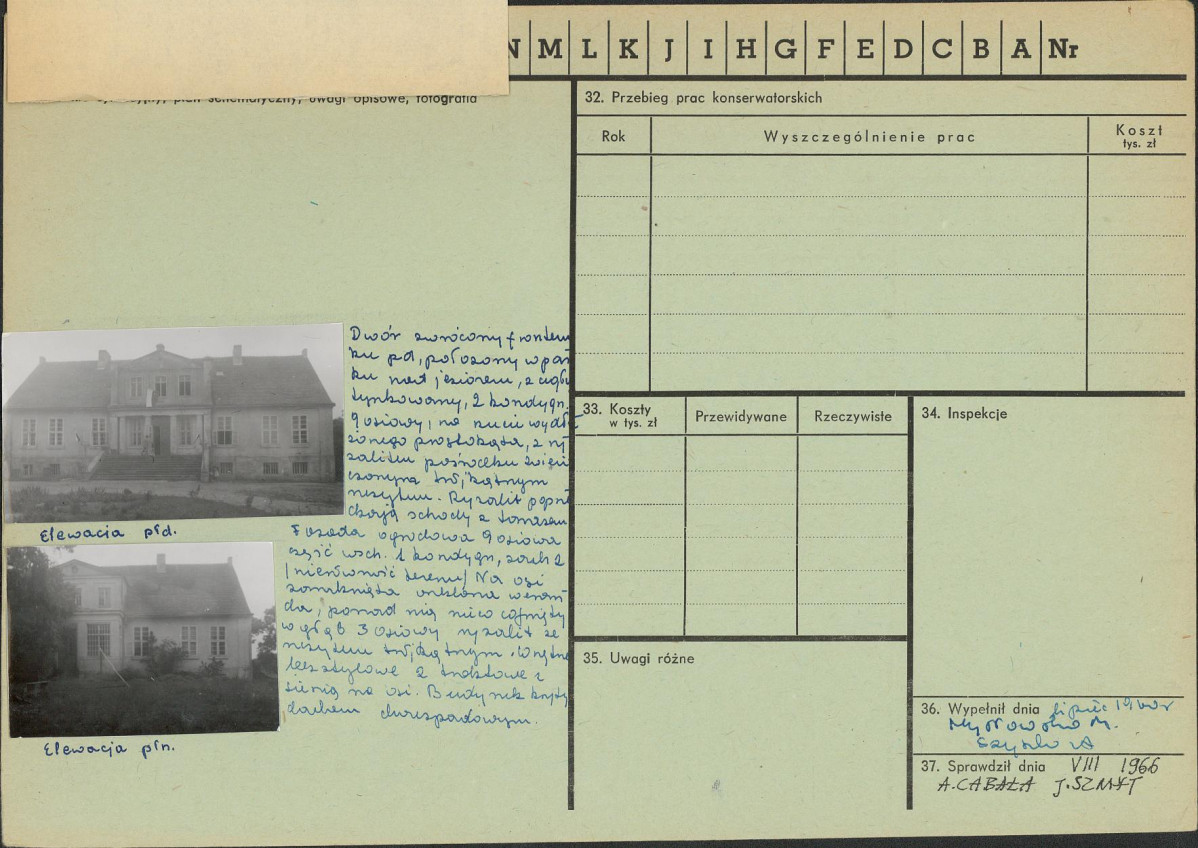 N M L K J I H G F E D C B A Nr
plan schematyczny, uwagi opisowe, fotografia
Dwór zwrócony frontem
ku pd, położony w par
ku nad jeziorem, z cegły
tynkowany, 2 kondygn.
9 osiowy, na rzucie wydłu
żonego prostokąta, z ry
zalitem pośrodku zwień
czonym trójkątnym
szczytem. Ryzalit poprze
dzają schody z tarasem
Fasada ogrodowa 9 osiowa
część wsch. 1 kondygn, zach 2
/nierówność terenu/ Na osi
zamknięta weran
da, ponad nią nieco cofnięty
w głąb 3 osiowy ryzalit ze
szczytem trójkątnym. Wnętrze
bezstylowe 2 traktowe z
sienią na osi. Budynek kryty
dachem dwuspadowym.
Elewacja płd.
Elewacja płn.
32. Przebieg prac konserwatorskich
Rok Wyszczególnienie prac Koszt
tys. zł
33. Koszty
w tys. zł
Przewidywane Rzeczywiste
34. Inspekcje
35. Uwagi różne
36. Wypełnił dnia lipiec
37. Sprawdził dnia VIII 1966
A. CABAŁA J. SZMYT